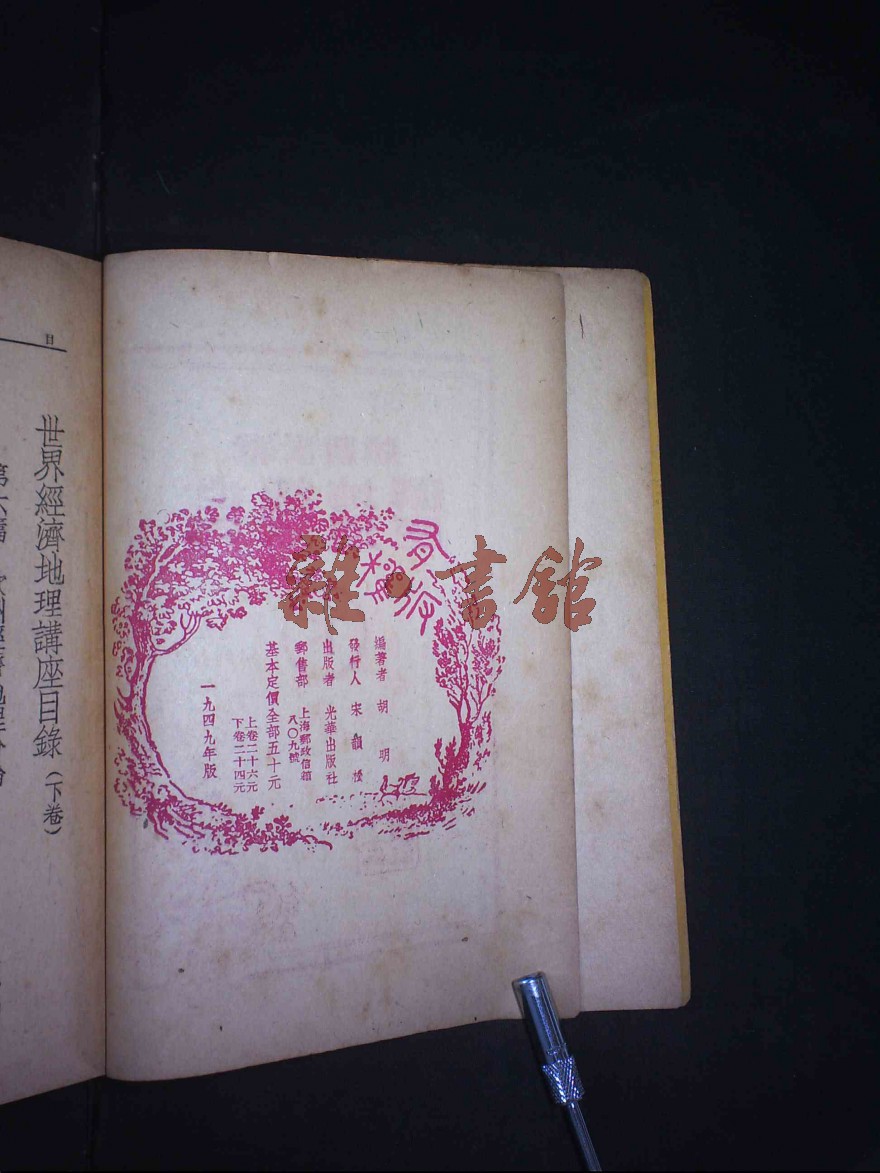 有
權
雜·書館
編著者 胡明
發行人 宋韻
出版者 光華出版社
郵售部 上海郵政信箱
八〇九號
基本定價全部五十元
上卷二十六元
下卷二十四元
一九四九年版
目
世界經濟地理講座目錄(下卷)
第六篇